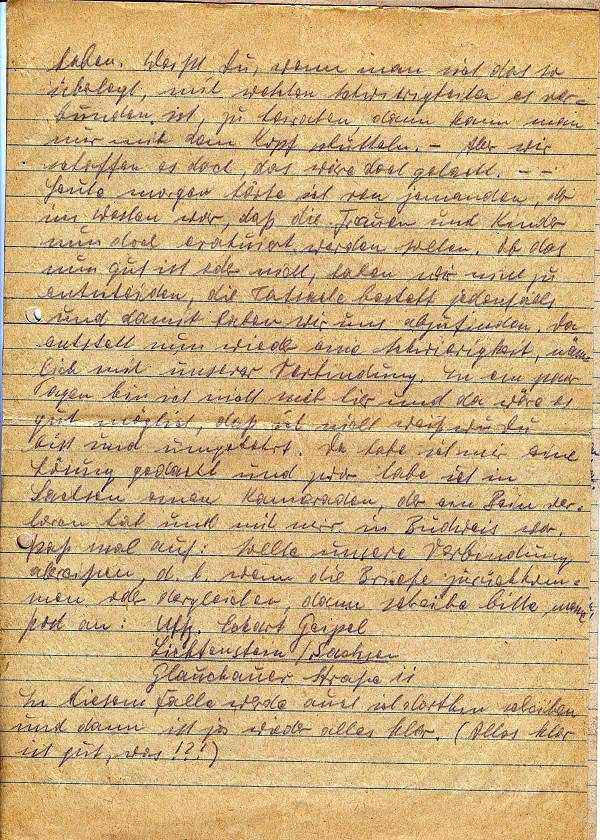 haben. Weißt Du, wenn man sich das so
überlegt, mit welchen Schwierigkeiten es ver-
bunden ist, zu heiraten, dann kann man
nur mit dem Kopf schütteln. – Aber wir
schaffen es doch, das wäre doch gelacht. – –
Heute morgen hörte ich von jemanden, der
im Westen war, daß die Frauen und Kinder
nun doch evakuiert werden sollen. Ob das
nun gut ist oder nicht, haben wir nicht zu
entscheiden, die Tatsache besteht jedenfalls
und damit haben wir uns abzufinden. Da
entsteht nun wieder eine Schwierigkeit, näm-
lich mit unserer Verbindung. In ein paar
Tagen bin ich nicht mehr hier und da wäre es
gut möglich, daß ich nicht weiß wo Du
bist und umgekehrt. Da habe ich mir eine
Lösung gedacht und zwar habe ich in
Sachsen einen Kameraden, der ein Bein ver-
loren hat und mit mir in Budweis war.
Paß mal auf: Sollte unsere Verbindung
abreißen, d. h. wenn die Briefe zurückkom-
men oder dergleichen, dann schreibe bitte, meine
Post an: Uffz. Eckart Geipel
Lichtenstein / Sachsen
Glauchauer Straße 11
In diesem Falle werde auch ich dorthin schreiben
und dann ist ja wieder alles klar. (Alles klar
ist gut, was !?!)